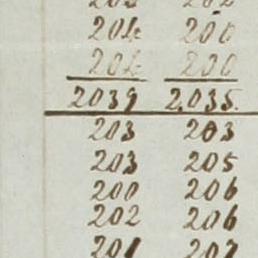 204 200
204 200
2039 2,035.
203 203
203 205
200 206
202 206
201 207